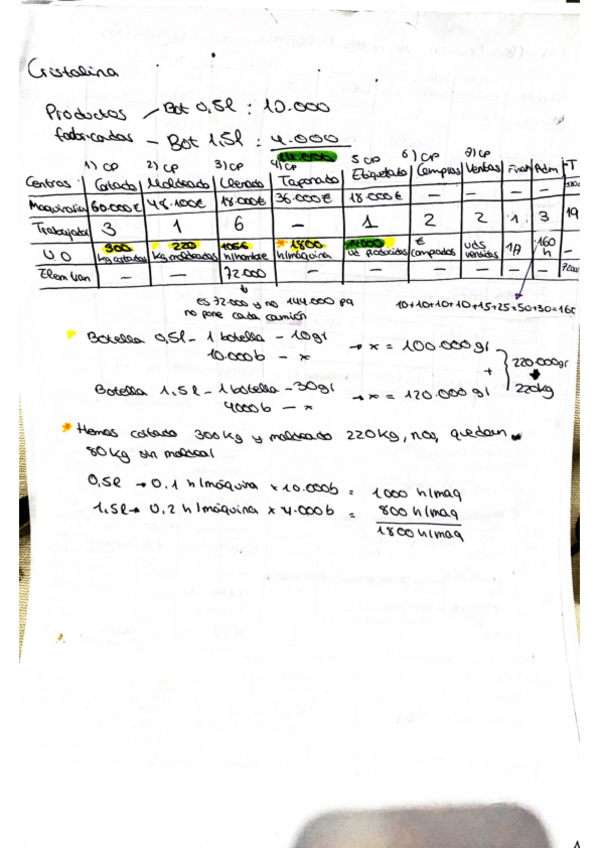 Cristalina
Productos - Bot 0,5l : 10.000
fabricados - Bot 1,5l : 4.000
14.000
1) CP 2) CP 3) CP 4) CP 5 CP 6) CP 7) CP
Centros Cortado Moldeado Llenado Taponado Etiquetado Compras Ventas Finan Adm T
Maquinaria 60.000€ 48.100€ 18.000€ 36.000€ 18.000€ — — — —
Trabajador 3 1 6 — 1 2 2 1 3 19
UO 300 kg cortados 220 kg moldeados 1056 h/hombre *1800 h/máquina 14000 ud producidas € comprados uds vendidas 160 h —
Elem — — 72.000 — — — — — —
es 72.000 y no 144.000 pq
no pone cada camión
10+10+10+10+15+25+50+30=160
Botella 0,5l - 1 botella - 10gr
10.000b - x → x = 100.000gr
+ 220.000gr
220kg
Botella 1.5l - 1 botella - 30gr
4000b - x → x = 120.000gr
* Hemos cortado 300kg y moldeado 220kg, nos quedan
80kg sin moldear
0,5l → 0,1 h/máquina x 10.000b = 1000 h/maq
1.5l → 0,2 h/máquina x 4.000b = 800 h/maq
1800 h/maq